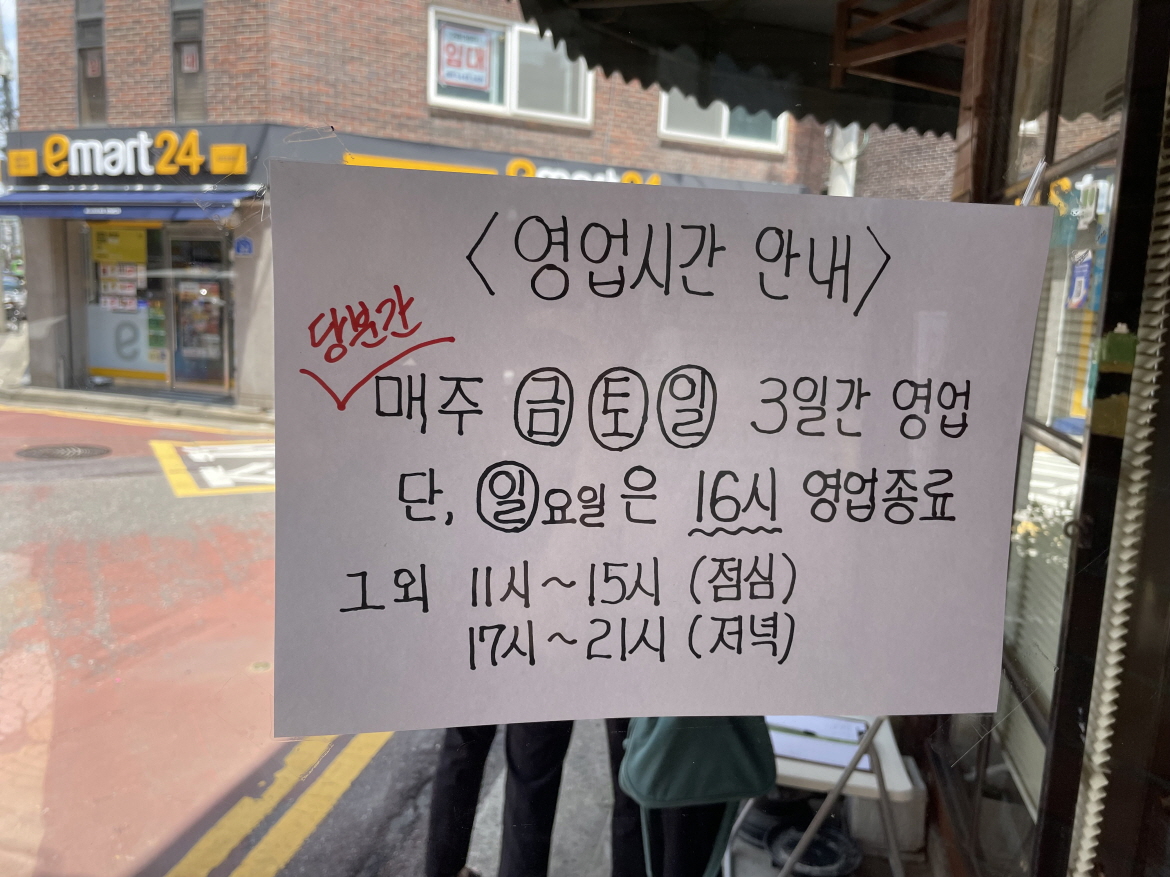 임대
emart24
emart24
<영업시간 안내>
당분간
매주 금 토 일 3일간 영업
단, 일요일은 16시 영업종료
그외 11시~15시 (점심)
17시~21시 (저녁)